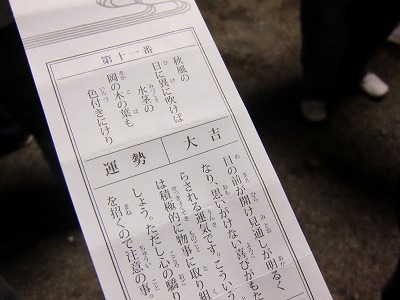 第十一番
秋風の
日に異に吹けば
水茎の
岡の木の葉も
色付きにけり
大吉
運勢
目の前が開け見通しが明るく
なり、思いがけない喜びももた
らされる運気です。こういう
は積極的に物事に取り組
しょう。ただし心の驕り
を招くので注意の事。